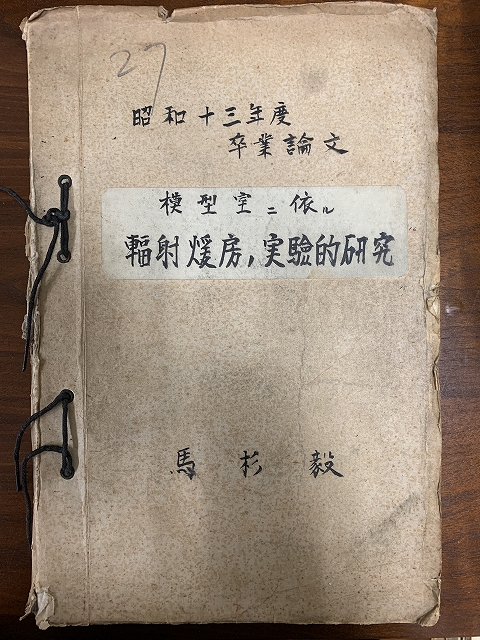 27
昭和十三年度
卒業論文
模型室ニ依ル
輻射煖房ノ実驗的研究
馬杉毅